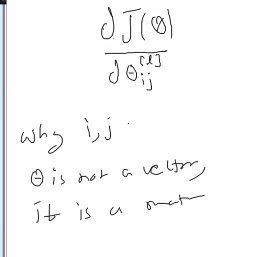 dJ(θ)
dθ_{ij}^{[l]}
why i,j.
θ is not a vector,
it is a